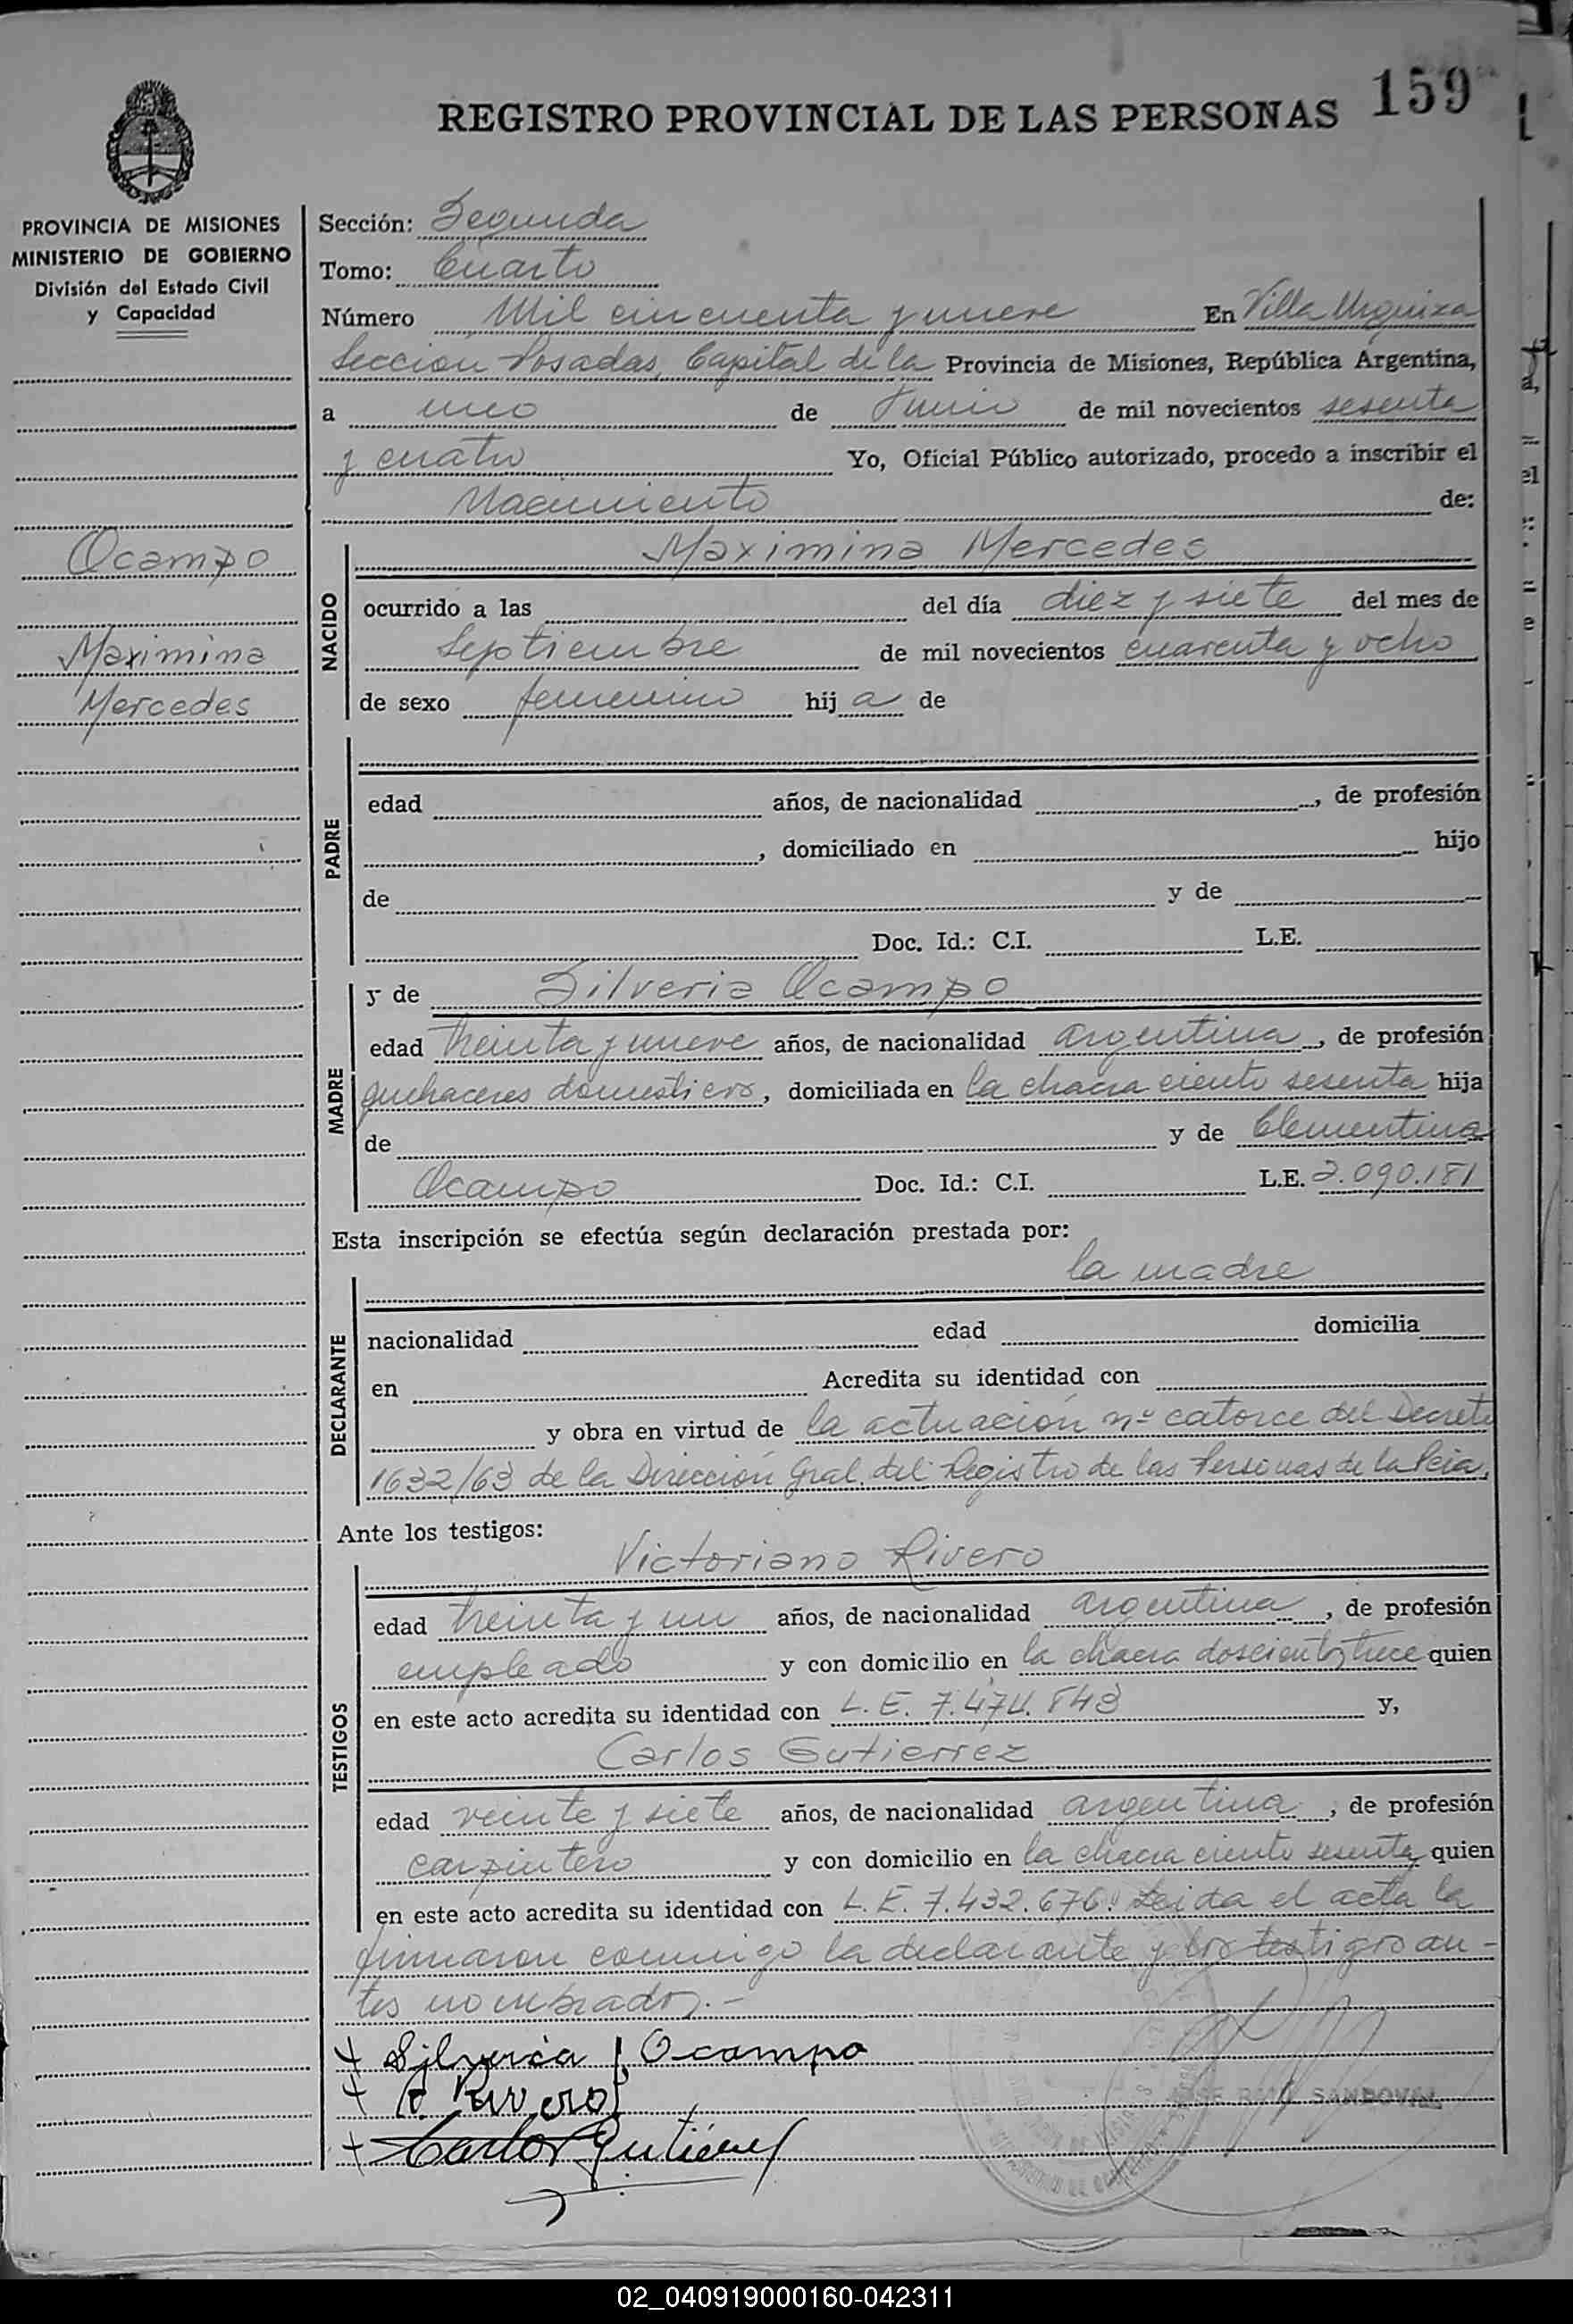 159
REGISTRO PROVINCIAL DE LAS PERSONAS
PROVINCIA DE MISIONES
MINISTERIO DE GOBIERNO
División del Estado Civil
y Capacidad
Ocampo
Maximina
Mercedes
Sección: Segunda
Tomo: Cuarto
Número Mil cincuenta y nueve En Villa Urquiza
Sección Posadas, Capital de la Provincia de Misiones, República Argentina,
a uno de Junio de mil novecientos sesenta
y cuatro Yo, Oficial Público autorizado, procedo a inscribir el
Nacimiento de:
NACIDO
Maximina Mercedes
ocurrido a las del día diez y siete del mes de
Septiembre de mil novecientos cuarenta y ocho
de sexo femenino hij a de
PADRE
edad años, de nacionalidad , de profesión
, domiciliado en hijo
de y de
Doc. Id.: C.I. L.E.
MADRE
y de Silveria Ocampo
edad treinta y nueve años, de nacionalidad argentina, de profesión
quehaceres domesticos, domiciliada en la chacra ciento sesenta hija
de y de Clementina
Ocampo Doc. Id.: C.I. L.E. 2.090.181
Esta inscripción se efectúa según declaración prestada por:
la madre
DECLARANTE
nacionalidad edad domicilia
en Acredita su identidad con
y obra en virtud de la actuación nº catorce del Decreto
1632/63 de la Dirección Gral. del Registro de las Personas de la Pcia.
Ante los testigos:
TESTIGOS
Victoriano Rivero
edad treinta y un años, de nacionalidad argentina, de profesión
empleado y con domicilio en la chacra doscientos trece quien
en este acto acredita su identidad con L.E. 7.474.843 y,
Carlos Gutierrez
edad veinte y siete años, de nacionalidad argentina, de profesión
carpintero y con domicilio en la chacra ciento sesenta quien
en este acto acredita su identidad con L.E. 7.432.676. Leida el acta la
firmaron conmigo la declarante y los testigos an-
tes nombrados.-
+ Silveria Ocampo
+ Rivero
+ Carlos Gutiérrez
SANDOVAL
02_040919000160-042311